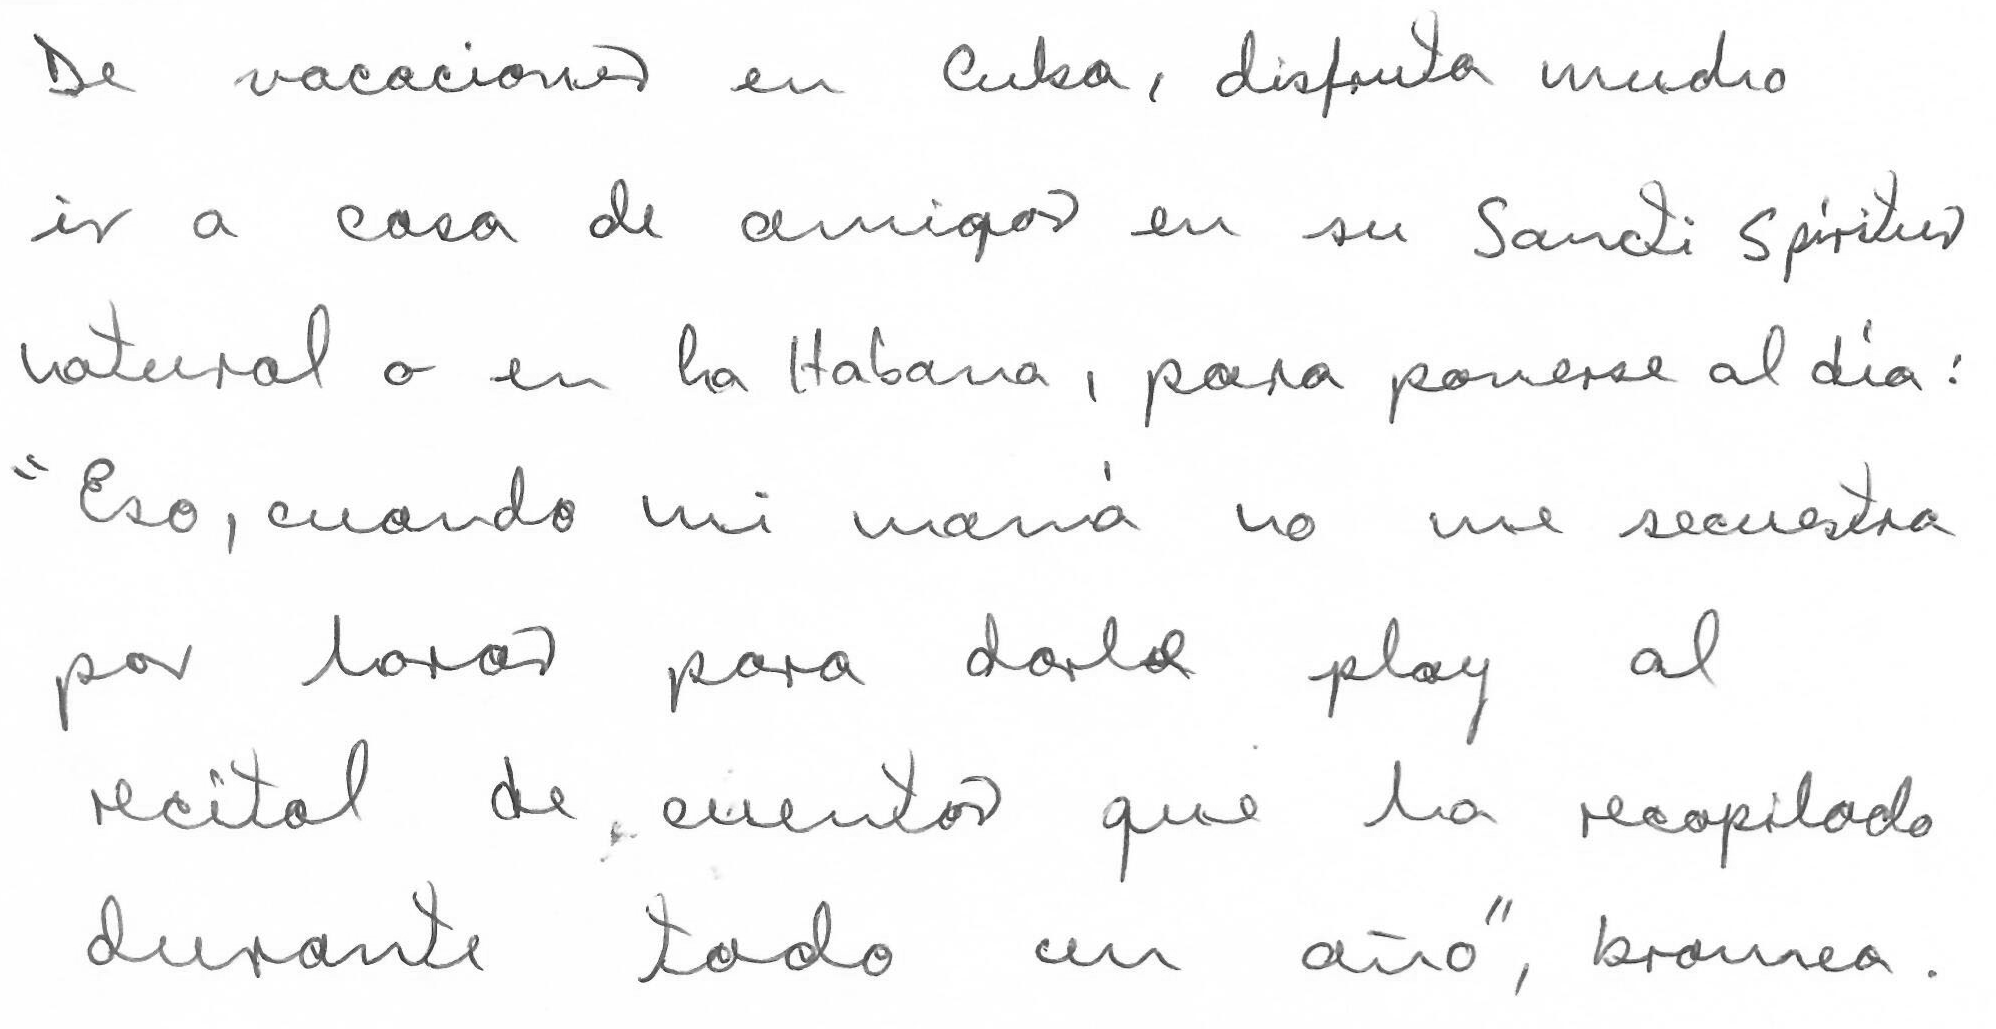 De vacaciones en Cuba, disfruta mucho
ir a casa de amigos en su Sancti Spíritus
natural o en La Habana, para ponerse al día:
"Eso, cuando mi mamá no me secuestra
por horas para darle play al
recital de cuentos que ha recopilado
durante todo un año", bromea.